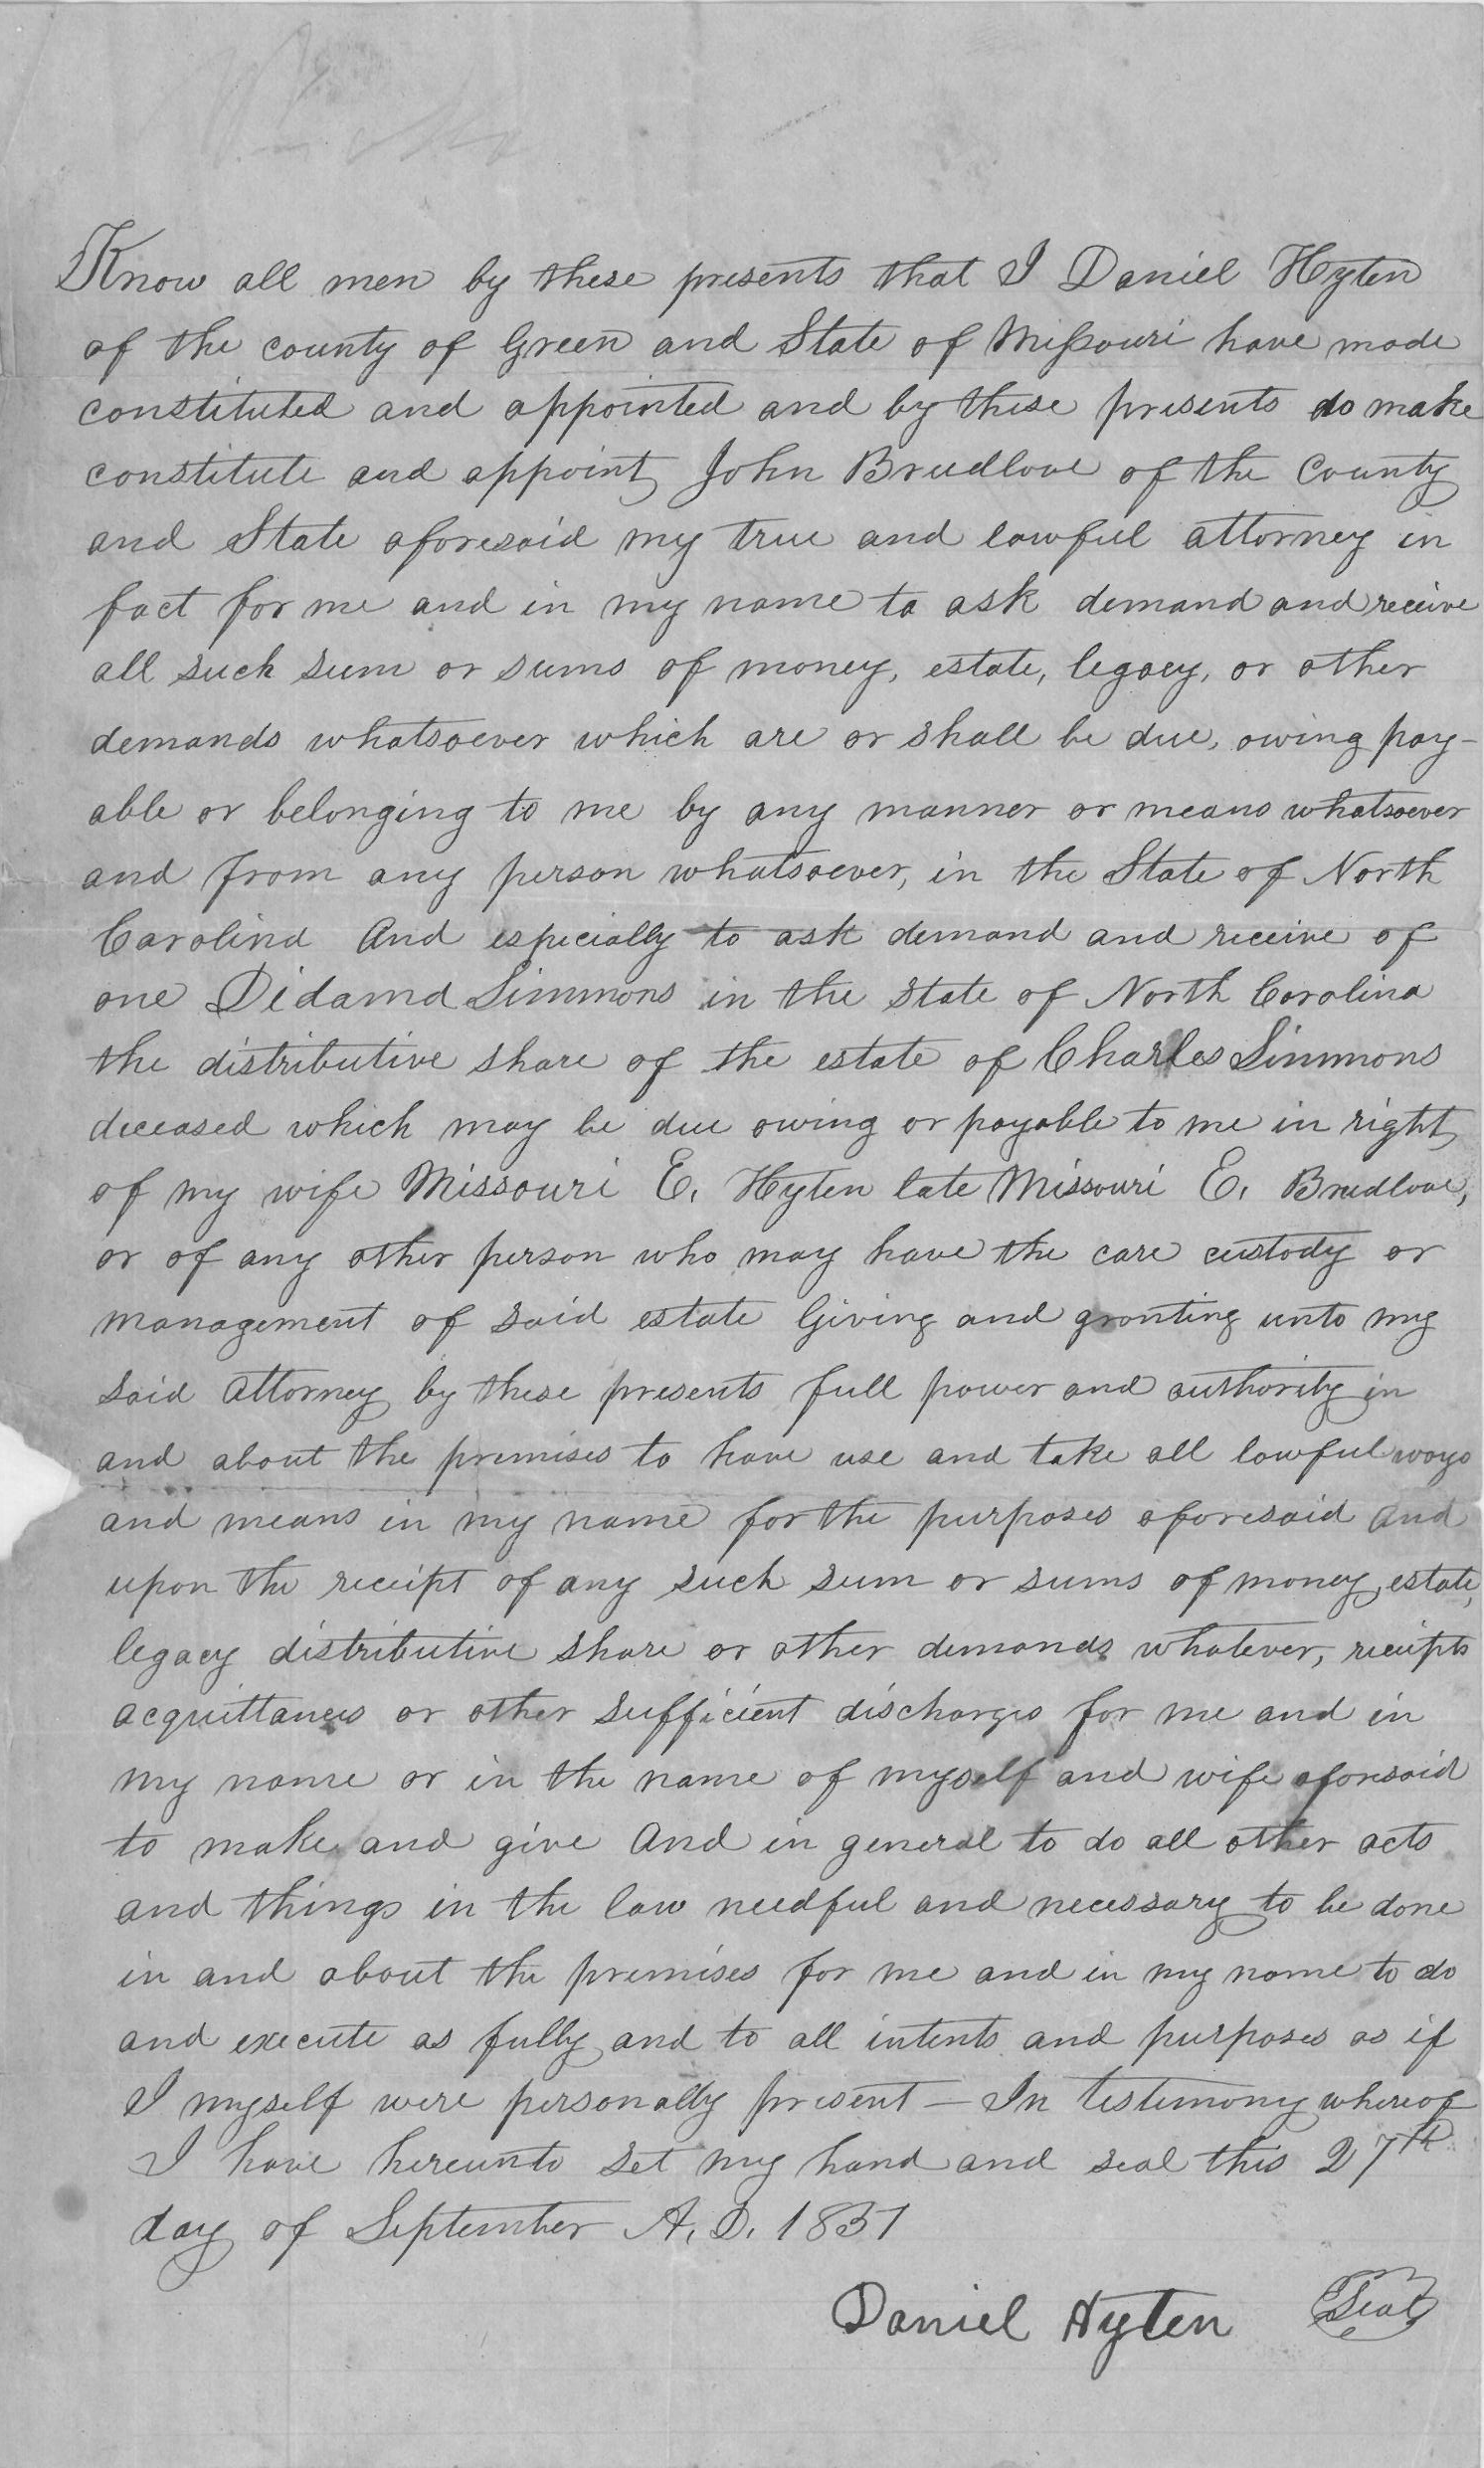 Know all men by these presents that I Daniel Hyten
of the county of Green and State of Missouri have made
constituted and appointed and by these presents do make
constitute and appoint John Breedlove of the County
and State aforesaid my true and lawful attorney in
fact for me and in my name to ask demand and receive
all such sum or sums of money, estate, legacy, or other
demands whatsoever which are or shall be due, owing pay-
able or belonging to me by any manner or means whatsoever
and from any person whatsoever, in the State of North
Carolina And especially to ask demand and receive of
one Didamd Simmons in the State of North Carolina
the distributive share of the estate of Charles Simmons
deceased which may be due owing or payable to me in right
of my wife Missouri E. Hyten late Missouri E. Breedlove,
or of any other person who may have the care custody or
management of said estate Giving and granting unto my
said Attorney by these presents full power and authority in
and about the premises to have use and take all lawful ways
and means in my name for the purposes aforesaid And
upon the receipt of any such sum or sums of money, estate,
legacy distributive share or other demands whatever, receipts
acquittances or other sufficient discharges for me and in
my name or in the name of myself and wife aforesaid
to make and give And in general to do all other acts
and things in the law needful and necessary to be done
in and about the premises for me and in my name to do
and execute as fully and to all intents and purposes as if
I myself were personally present — In testimony whereof
I have hereunto set my hand and seal this 27th
day of September A.D. 1851
Daniel Hyten Seal